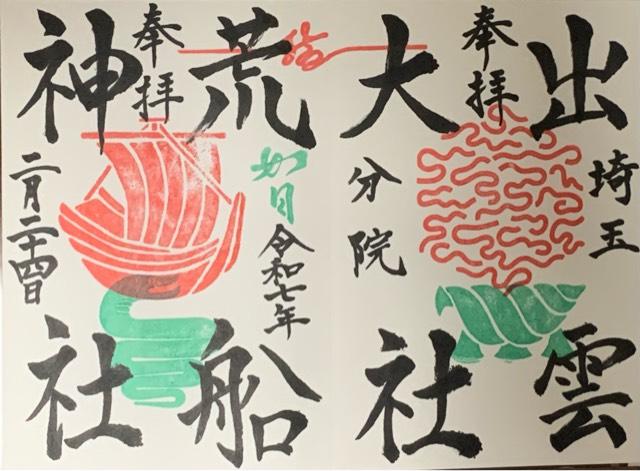 奉拝
出雲
大社
埼玉
分院
奉拝
荒船
神社
如月
令和七年
二月二十四日